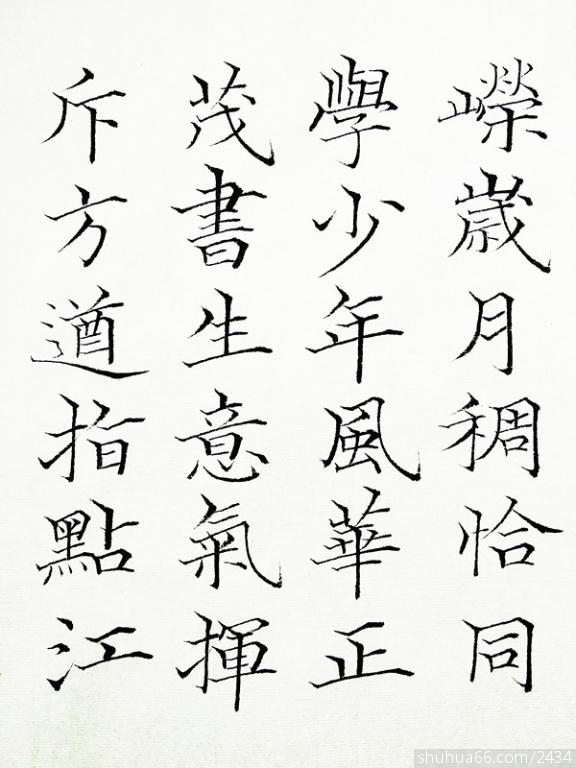 嶸歲月稠恰同
學少年風華正
茂書生意氣揮
斥方遒指點江
shuhua66.com/2434